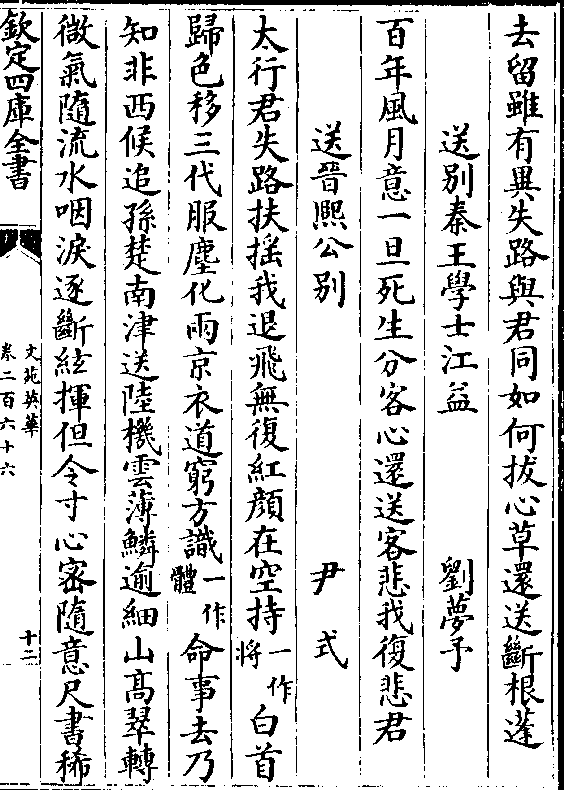 去留雖有異失路與君同如何拔心草還送斷根蓬
送別秦王學士江益　劉夢予
百年風月意一旦死生分客心還送客悲我復悲君
送晉熙公別　尹式
太行君失路扶搖我退飛無復紅顔在空持一作將白首
歸色移三代服塵化兩京衣道窮方識一作體命事去乃
知非西候追孫楚南津送陸機雲薄鱗逾細山髙翠轉
微氣隨流水咽淚逐斷絃揮但令寸心宻隨意尺書稀
欽定四庫全書
文苑英華
卷二百六十六
十二